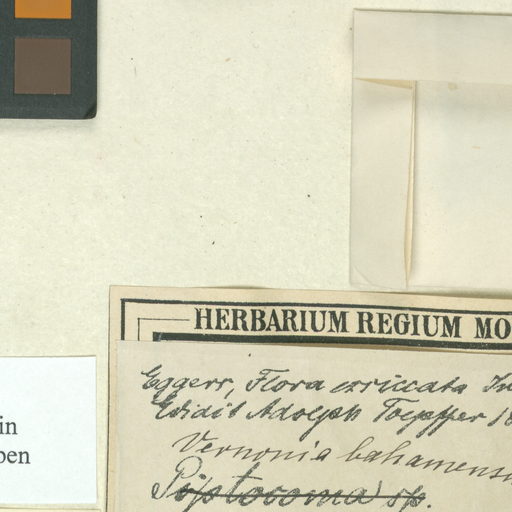 HERBARIUM REGIUM MO
Eggers, Flora exsiccata In
Edidit Adolph Toepffer 18
Vernonia bahamens
Piptocoma sp.
in
pen